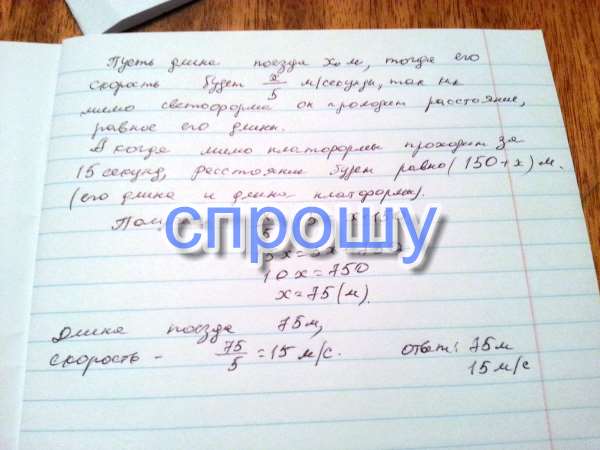 Пусть длина поезда х м, тогда его
скорость будет х/5 м/секунды, так как
мимо светоформа он проходит расстояние,
равное его длины.
А когда мимо платформы проходит за
15 секунд, расстояние будет равно (150+х) м.
(его длина и длина платформы).
спрошу
10х=750
х=75 (м).
Длина поезда 75м,
скорость - 75/5 = 15 м/с. ответ: 75м
15 м/с